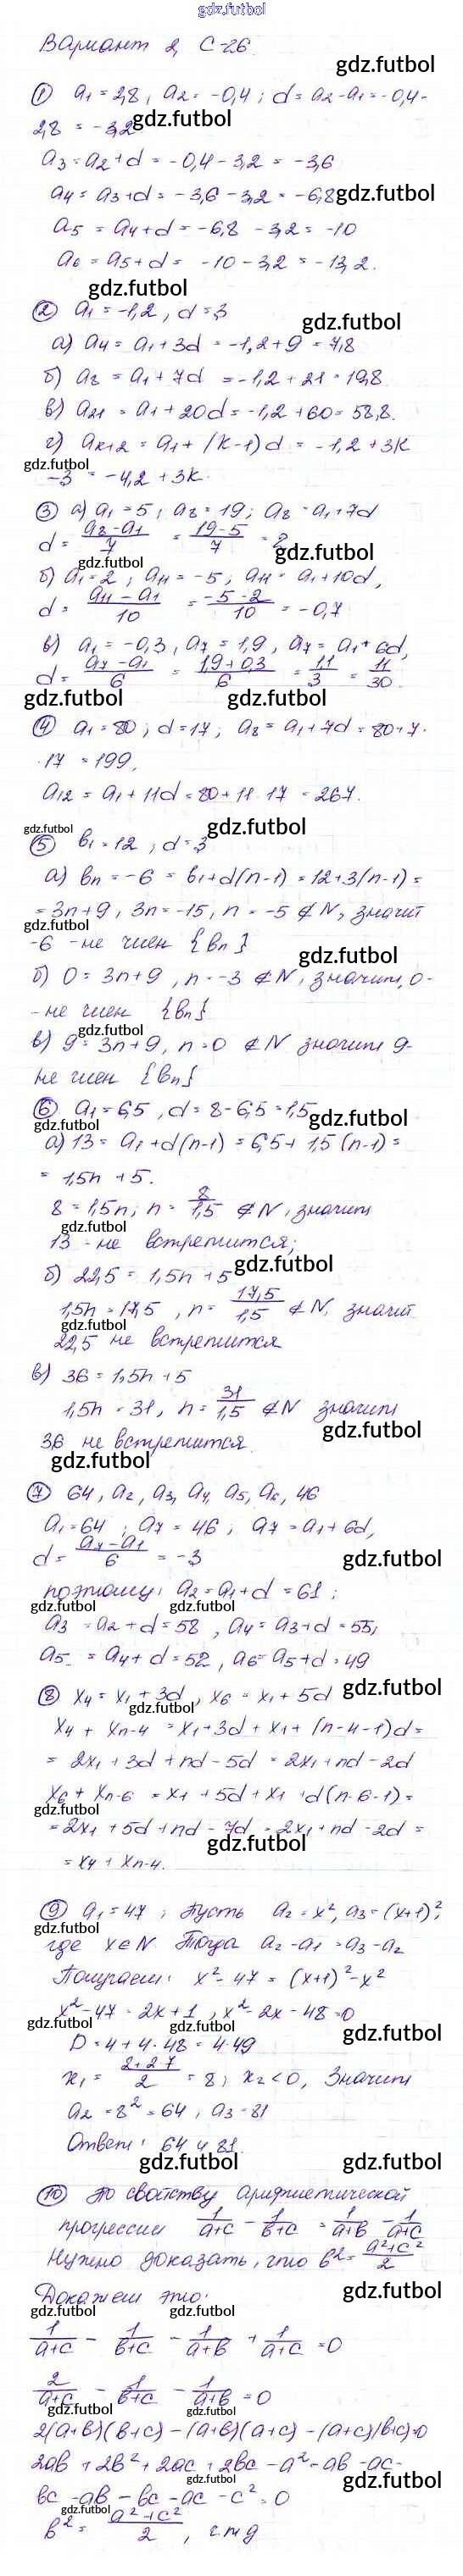 gdz.futbol
Вариант 2, С-26
gdz.futbol
① a₁ = 2,8, a₂ = -0,4; d = a₂ - a₁ = -0,4 -
2,8 = -3,2 gdz.futbol
a₃ = a₂ + d = -0,4 - 3,2 = -3,6
a₄ = a₃ + d = -3,6 - 3,2 = -6,8 gdz.futbol
a₅ = a₄ + d = -6,8 - 3,2 = -10
a₆ = a₅ + d = -10 - 3,2 = -13,2.
gdz.futbol
② a₁ = -1,2, d = 3
gdz.futbol
а) a₄ = a₁ + 3d = -1,2 + 9 = 7,8
б) a₈ = a₁ + 7d = -1,2 + 21 = 19,8
в) a₂₁ = a₁ + 20d = -1,2 + 60 = 58,8.
г) aₖ₊₂ = a₁ + (k-1)d = -1,2 + 3k
gdz.futbol
-3 = -4,2 + 3k.
③ а) a₁ = 5; a₈ = 19; a₈ = a₁ + 7d
d = (a₈ - a₁)/7 = (19-5)/7 = 2
gdz.futbol gdz.futbol
б) a₁ = 2; a₁₁ = -5; a₁₁ = a₁ + 10d,
d = (a₁₁ - a₁)/10 = (-5-2)/10 = -0,7
в) a₁ = -0,3, a₇ = 1,9, a₇ = a₁ + 6d,
d = (a₇ - a₁)/6 = (1,9+0,3)/6 = 1,1/3 = 11/30
gdz.futbol gdz.futbol
④ a₁ = 80; d = 17; a₈ = a₁ + 7d = 80 + 7·
·17 = 199,
a₁₂ = a₁ + 11d = 80 + 11·17 = 267.
gdz.futbol gdz.futbol
⑤ b₁ = 12, d = 3
а) bₙ = -6 = b₁ + d(n-1) = 12 + 3(n-1) =
= 3n + 9, 3n = -15, n = -5 ∉ N, значит
gdz.futbol
-6 - не член {bₙ}
gdz.futbol
б) 0 = 3n + 9, n = -3 ∉ N, значит, 0 -
- не член {bₙ}
gdz.futbol
в) 9 = 3n + 9, n = 0 ∉ N значит 9 -
не член {bₙ}
⑥ a₁ = 6,5, d = 8 - 6,5 = 1,5 gdz.futbol
gdz.futbol
а) 13 = a₁ + d(n-1) = 6,5 + 1,5(n-1) =
= 1,5n + 5.
8 = 1,5n; n = 8/1,5 ∉ N, значит
gdz.futbol
13 - не встретится;
б) 22,5 = 1,5n + 5 gdz.futbol
1,5n = 17,5, n = 17,5/1,5 ∉ N, значит
gdz.futbol
22,5 не встретится
в) 36 = 1,5n + 5
1,5n = 31, n = 31/1,5 ∉ N значит
gdz.futbol
36 не встретится
gdz.futbol
⑦ 64, a₂, a₃, a₄, a₅, a₆, 46
a₁ = 64; a₇ = 46; a₇ = a₁ + 6d,
d = (a₇ - a₁)/6 = -3
gdz.futbol
поэтому: a₂ = a₁ + d = 61;
gdz.futbol gdz.futbol
a₃ = a₂ + d = 58, a₄ = a₃ + d = 55,
a₅ = a₄ + d = 52, a₆ = a₅ + d = 49
⑧ x₄ = x₁ + 3d, x₆ = x₁ + 5d gdz.futbol
gdz.futbol
x₄ + xₙ₋₄ = x₁ + 3d + x₁ + (n-4-1)d =
= 2x₁ + 3d + nd - 5d = 2x₁ + nd - 2d
x₆ + xₙ₋₆ = x₁ + 5d + x₁ + d(n-6-1) =
gdz.futbol
= 2x₁ + 5d + nd - 7d = 2x₁ + nd - 2d =
gdz.futbol
= x₄ + xₙ₋₄.
⑨ a₁ = 47; Пусть a₂ = x², a₃ = (x+1)²,
gdz.futbol
где x ∈ N. Тогда a₂ - a₁ = a₃ - a₂
Получаем: x² - 47 = (x+1)² - x²
x² - 47 = 2x + 1, x² - 2x - 48 = 0
gdz.futbol gdz.futbol gdz.futbol
D = 4 + 4·48 = 4·49
x₁ = (2+2·7)/2 = 8; x₂ < 0, Значит
a₂ = 8² = 64, a₃ = 81
Ответ: 64 и 81.
gdz.futbol gdz.futbol
⑩ По свойству арифметической
прогрессии 1/(a+c) - 1/(b+c) = 1/(a+b) - 1/(a+c)
Нужно доказать, что b² = (a²+c²)/2
Докажем это:
gdz.futbol
gdz.futbol gdz.futbol
1/(a+c) - 1/(b+c) - 1/(a+b) + 1/(a+c) = 0
2/(a+c) - 1/(b+c) - 1/(a+b) = 0
gdz.futbol gdz.futbol
2(a+b)(b+c) - (a+b)(a+c) - (a+c)(b+c) = 0
2ab + 2b² + 2ac + 2bc - a² - ab - ac -
gdz.futbol gdz.futbol
bc - ab - bc - ac - c² = 0
gdz.futbol
b² = (a²+c²)/2, ч.т.д